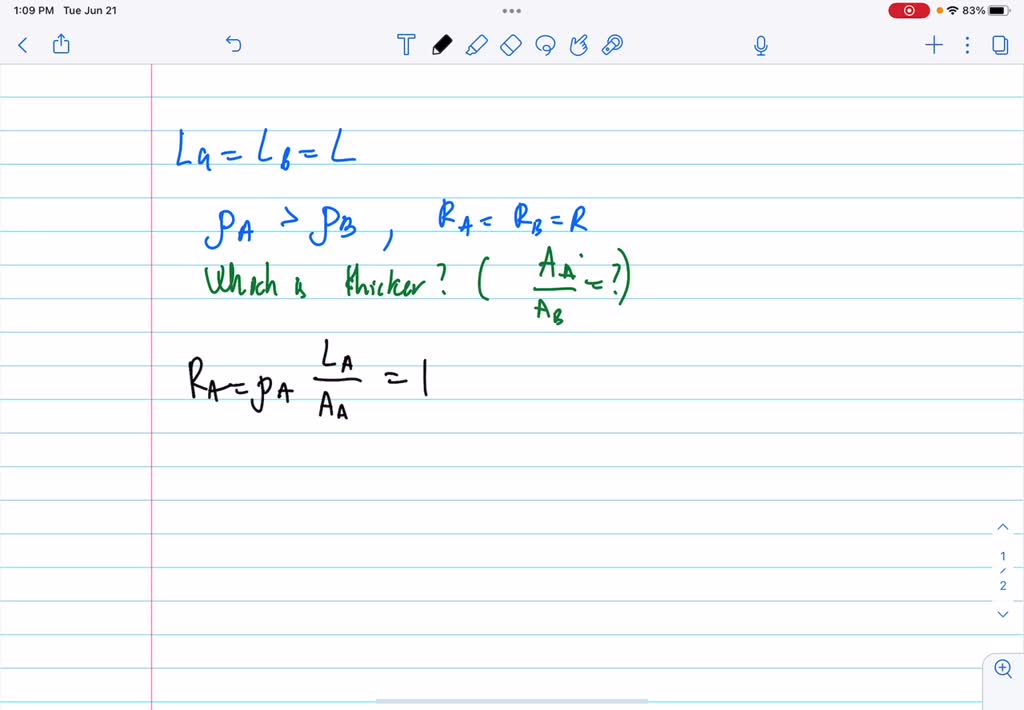 1:09 PM Tue Jun 21
83%
T
L_A = L_B = L
ρ_A > ρ_B , R_A = R_B = R
Which is thicker? ( A_A / A_B = ?)
R_A = ρ_A L_A / A_A = 1
1
/
2